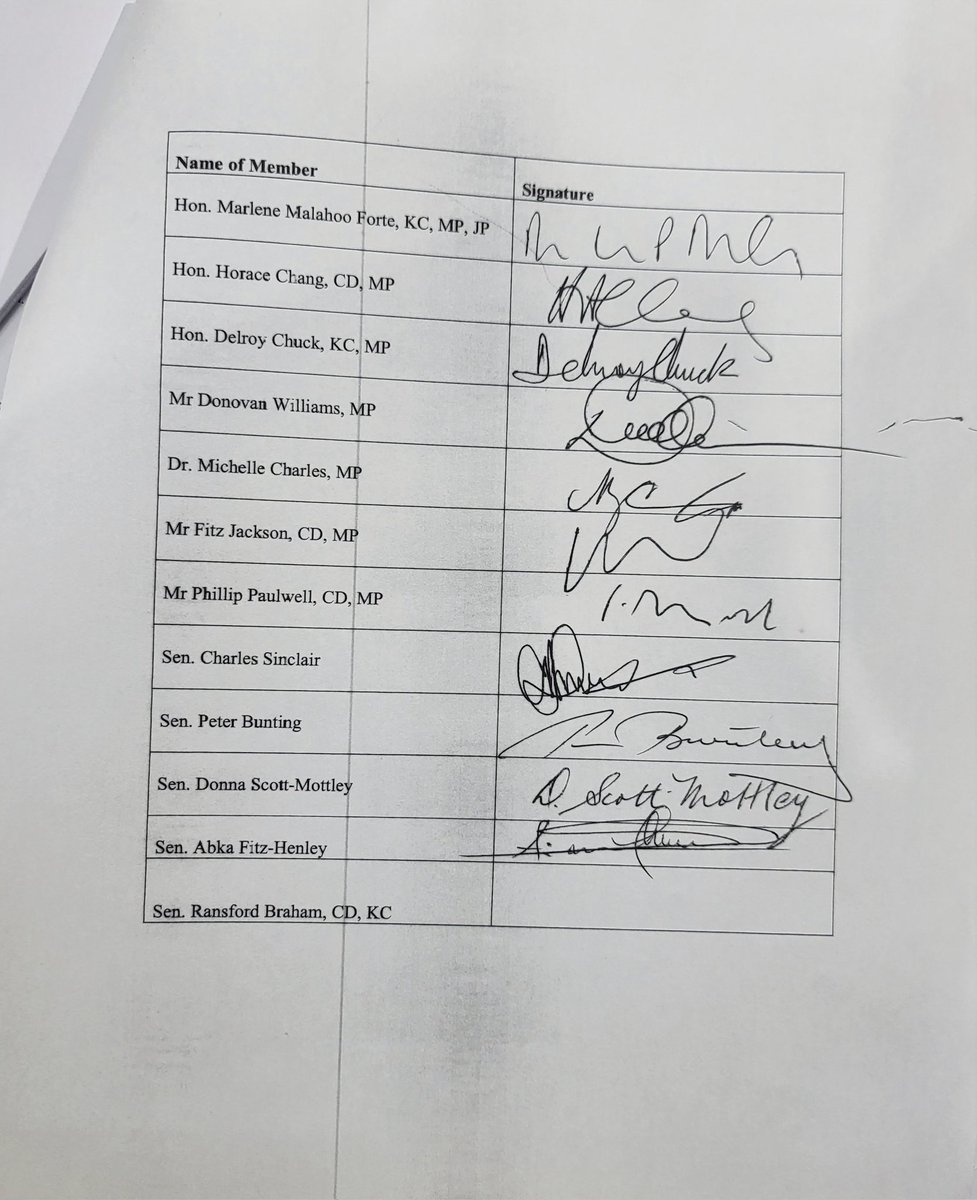 Name of Member Signature
Hon. Marlene Malahoo Forte, KC, MP, JP
Hon. Horace Chang, CD, MP
Hon. Delroy Chuck, KC, MP Delroy Chuck
Mr Donovan Williams, MP
Dr. Michelle Charles, MP
Mr Fitz Jackson, CD, MP
Mr Phillip Paulwell, CD, MP
Sen. Charles Sinclair
Sen. Peter Bunting
Sen. Donna Scott-Mottley D. Scott-Mottley
Sen. Abka Fitz-Henley
Sen. Ransford Braham, CD, KC